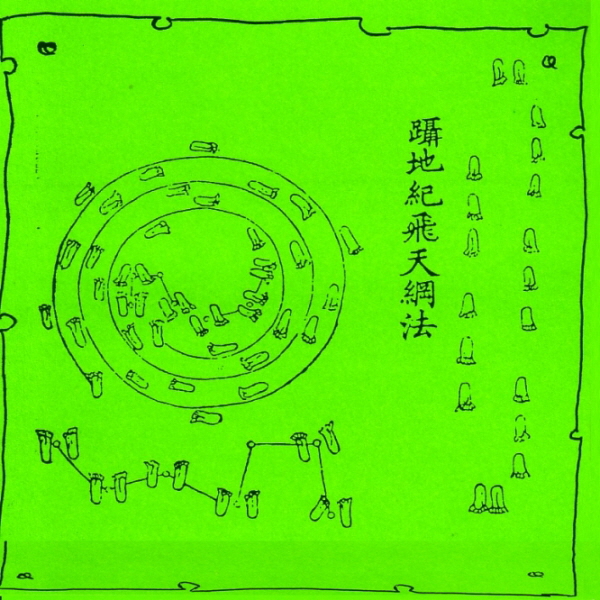 躡地紀飛天綱法